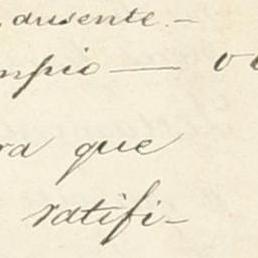 ausente.-
mpio — o
ra que
ratifi-